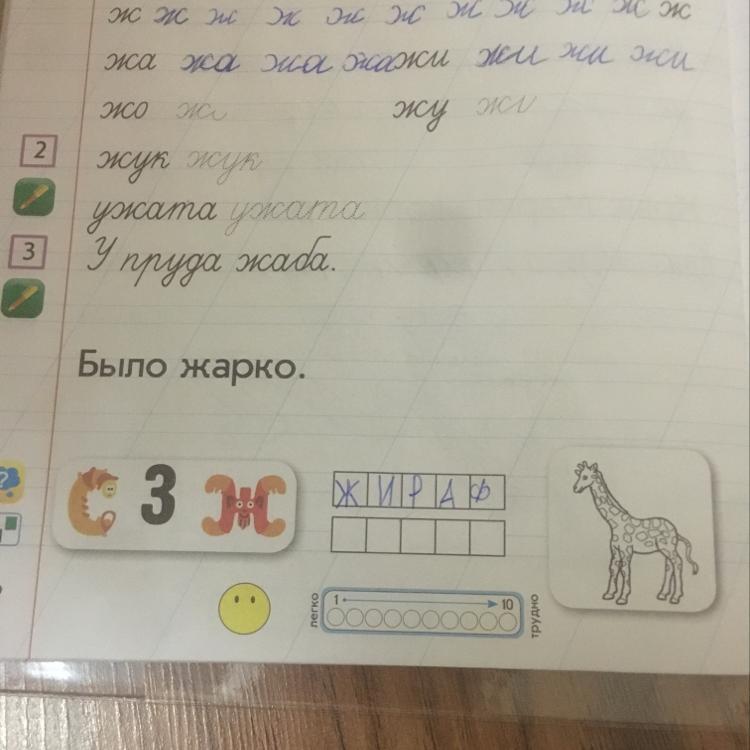 ж ж ж ж ж ж ж ж ж ж ж
жа жа жа жа жи жи жи жи
жо жо жу жу
2
жук жук
ужата ужата
3 У пруда жаба.
Было жарко.
З Ж
ЖИРАФ
легко 1 10 трудно